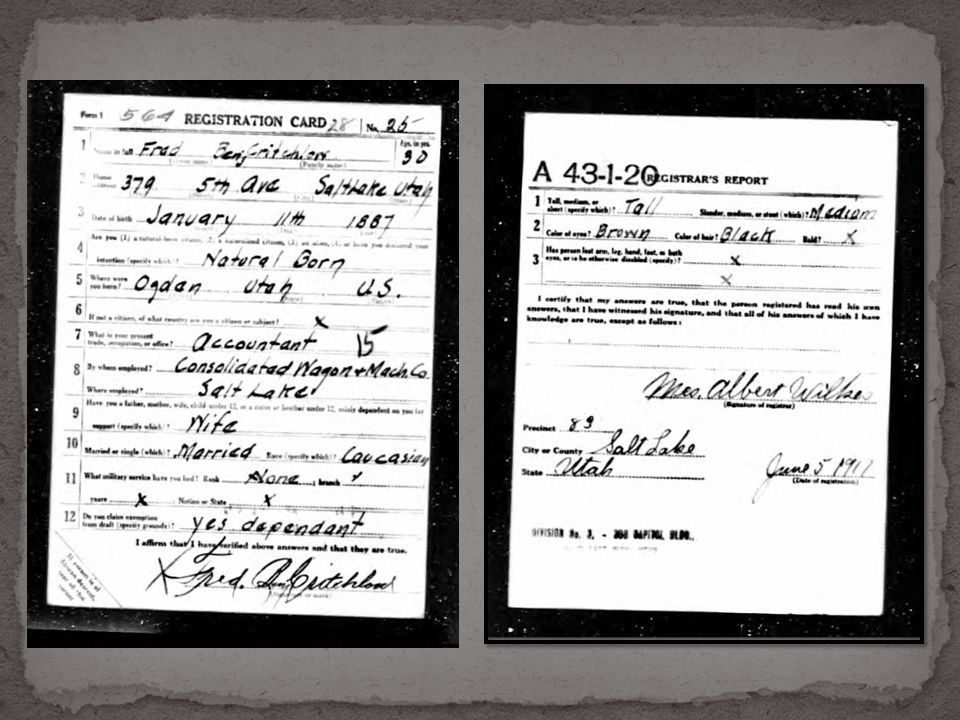 Form 1 564 REGISTRATION CARD 28 No. 25
1 Name in full Fred Benj Critchlow Age, in yrs. 30
(Given name) (Family name)
2 Home address 379 5th Ave Salt Lake Utah
3 Date of birth January 11th 1887
4 Are you (1) a natural-born citizen, (2) a naturalized citizen, (3) an alien, (4) or have you declared your
intention (specify which)? Natural Born
5 Where were you born? Ogden Utah U.S.
6 If not a citizen, of what country are you a citizen or subject? X
7 What is your present trade, occupation, or office? Accountant 15
8 By whom employed? Consolidated Wagon & Mach. Co.
Where employed? Salt Lake
9 Have you a father, mother, wife, child under 12, or a sister or brother under 12, solely dependent on you for
support (specify which)? Wife
10 Married or single (which)? Married Race (specify which)? Caucasian
11 What military service have you had? Rank None ; branch
years X Nation or State X
12 Do you claim exemption from draft (specify grounds)? yes dependant
I affirm that I have verified above answers and that they are true.
X Fred. Benj Critchlow
(Signature or mark)
If person is of
African descent,
tear off this
corner
A 43-1-20 REGISTRAR'S REPORT
1 Tall, medium, or short (specify which)? Tall Slender, medium, or stout (which)? Medium
2 Color of eyes? Brown Color of hair? Black Bald? X
3 Has person lost arm, leg, hand, foot, or both
eyes, or is he otherwise disabled (specify)? X
X
I certify that my answers are true, that the person registered has read his own
answers, that I have witnessed his signature, and that all of his answers of which I have
knowledge are true, except as follows:
Mrs. Albert Wilkes
(Signature of registrar)
Precinct 89
City or County Salt Lake
State Utah
June 5 1917
(Date of registration)
DIVISION No. 3, - 308 CAPITOL BLDG.,